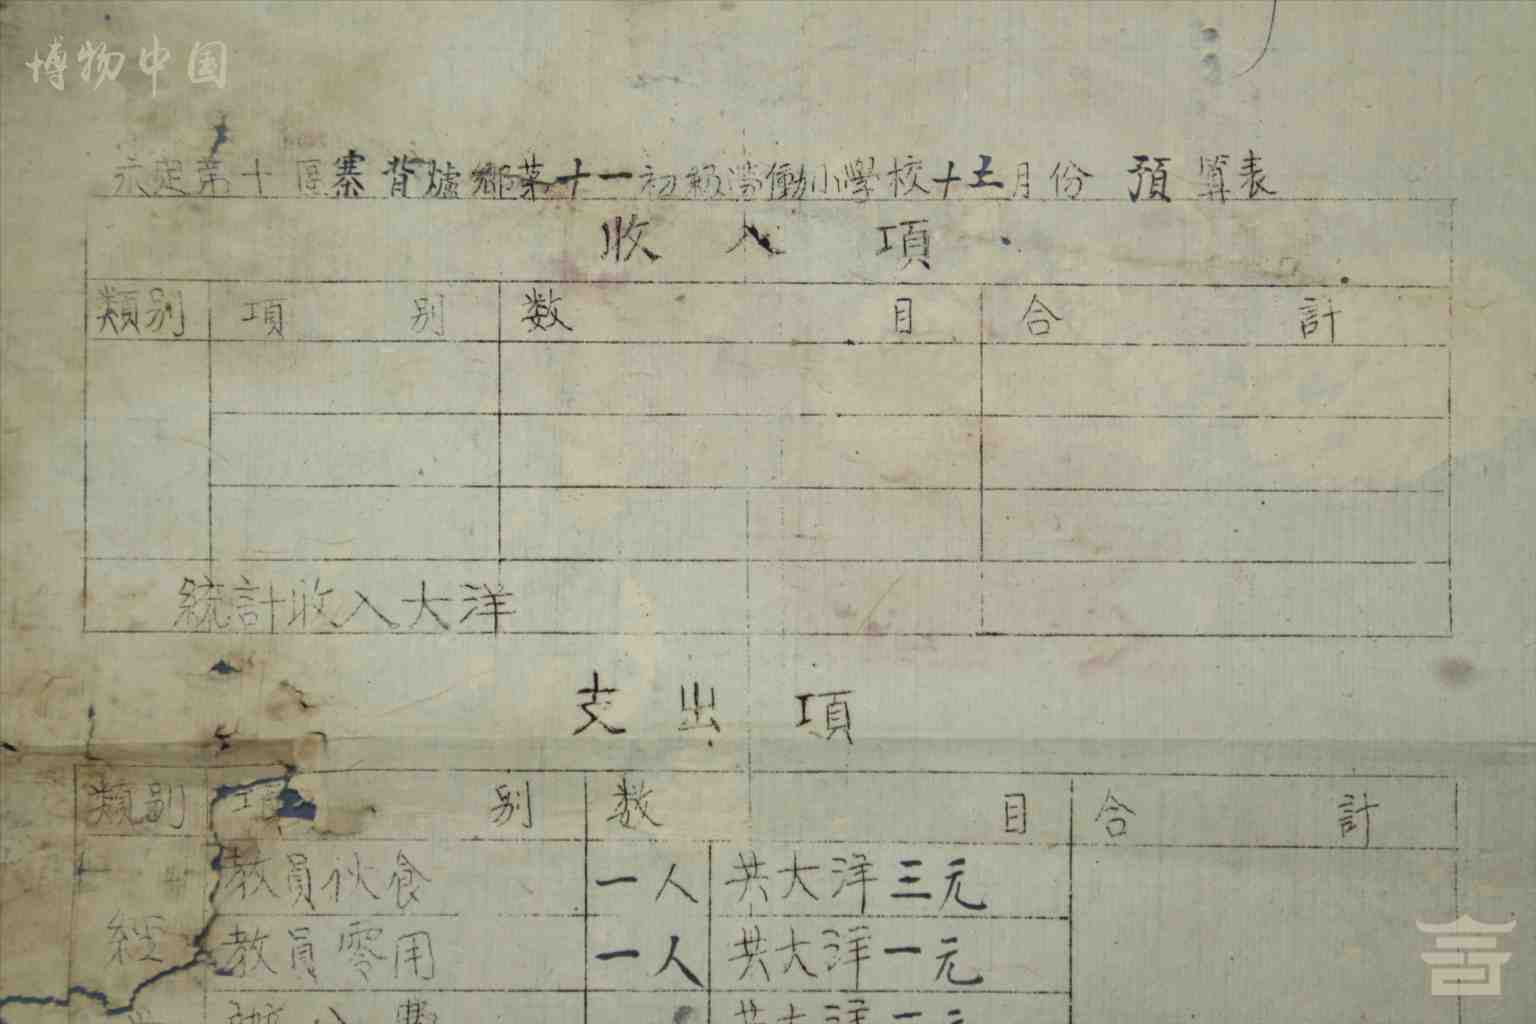 博物中国
永定第十區寨背爐鄉第十一初級勞動小學校十五月份 預算表
收入項
類別 項別 数目 合計
統計收入大洋
支出項
類別 項別 数目 合計
教員伙食 一人 共大洋三元
經 教員零用 一人 共大洋一元
辦公費 共大洋二元